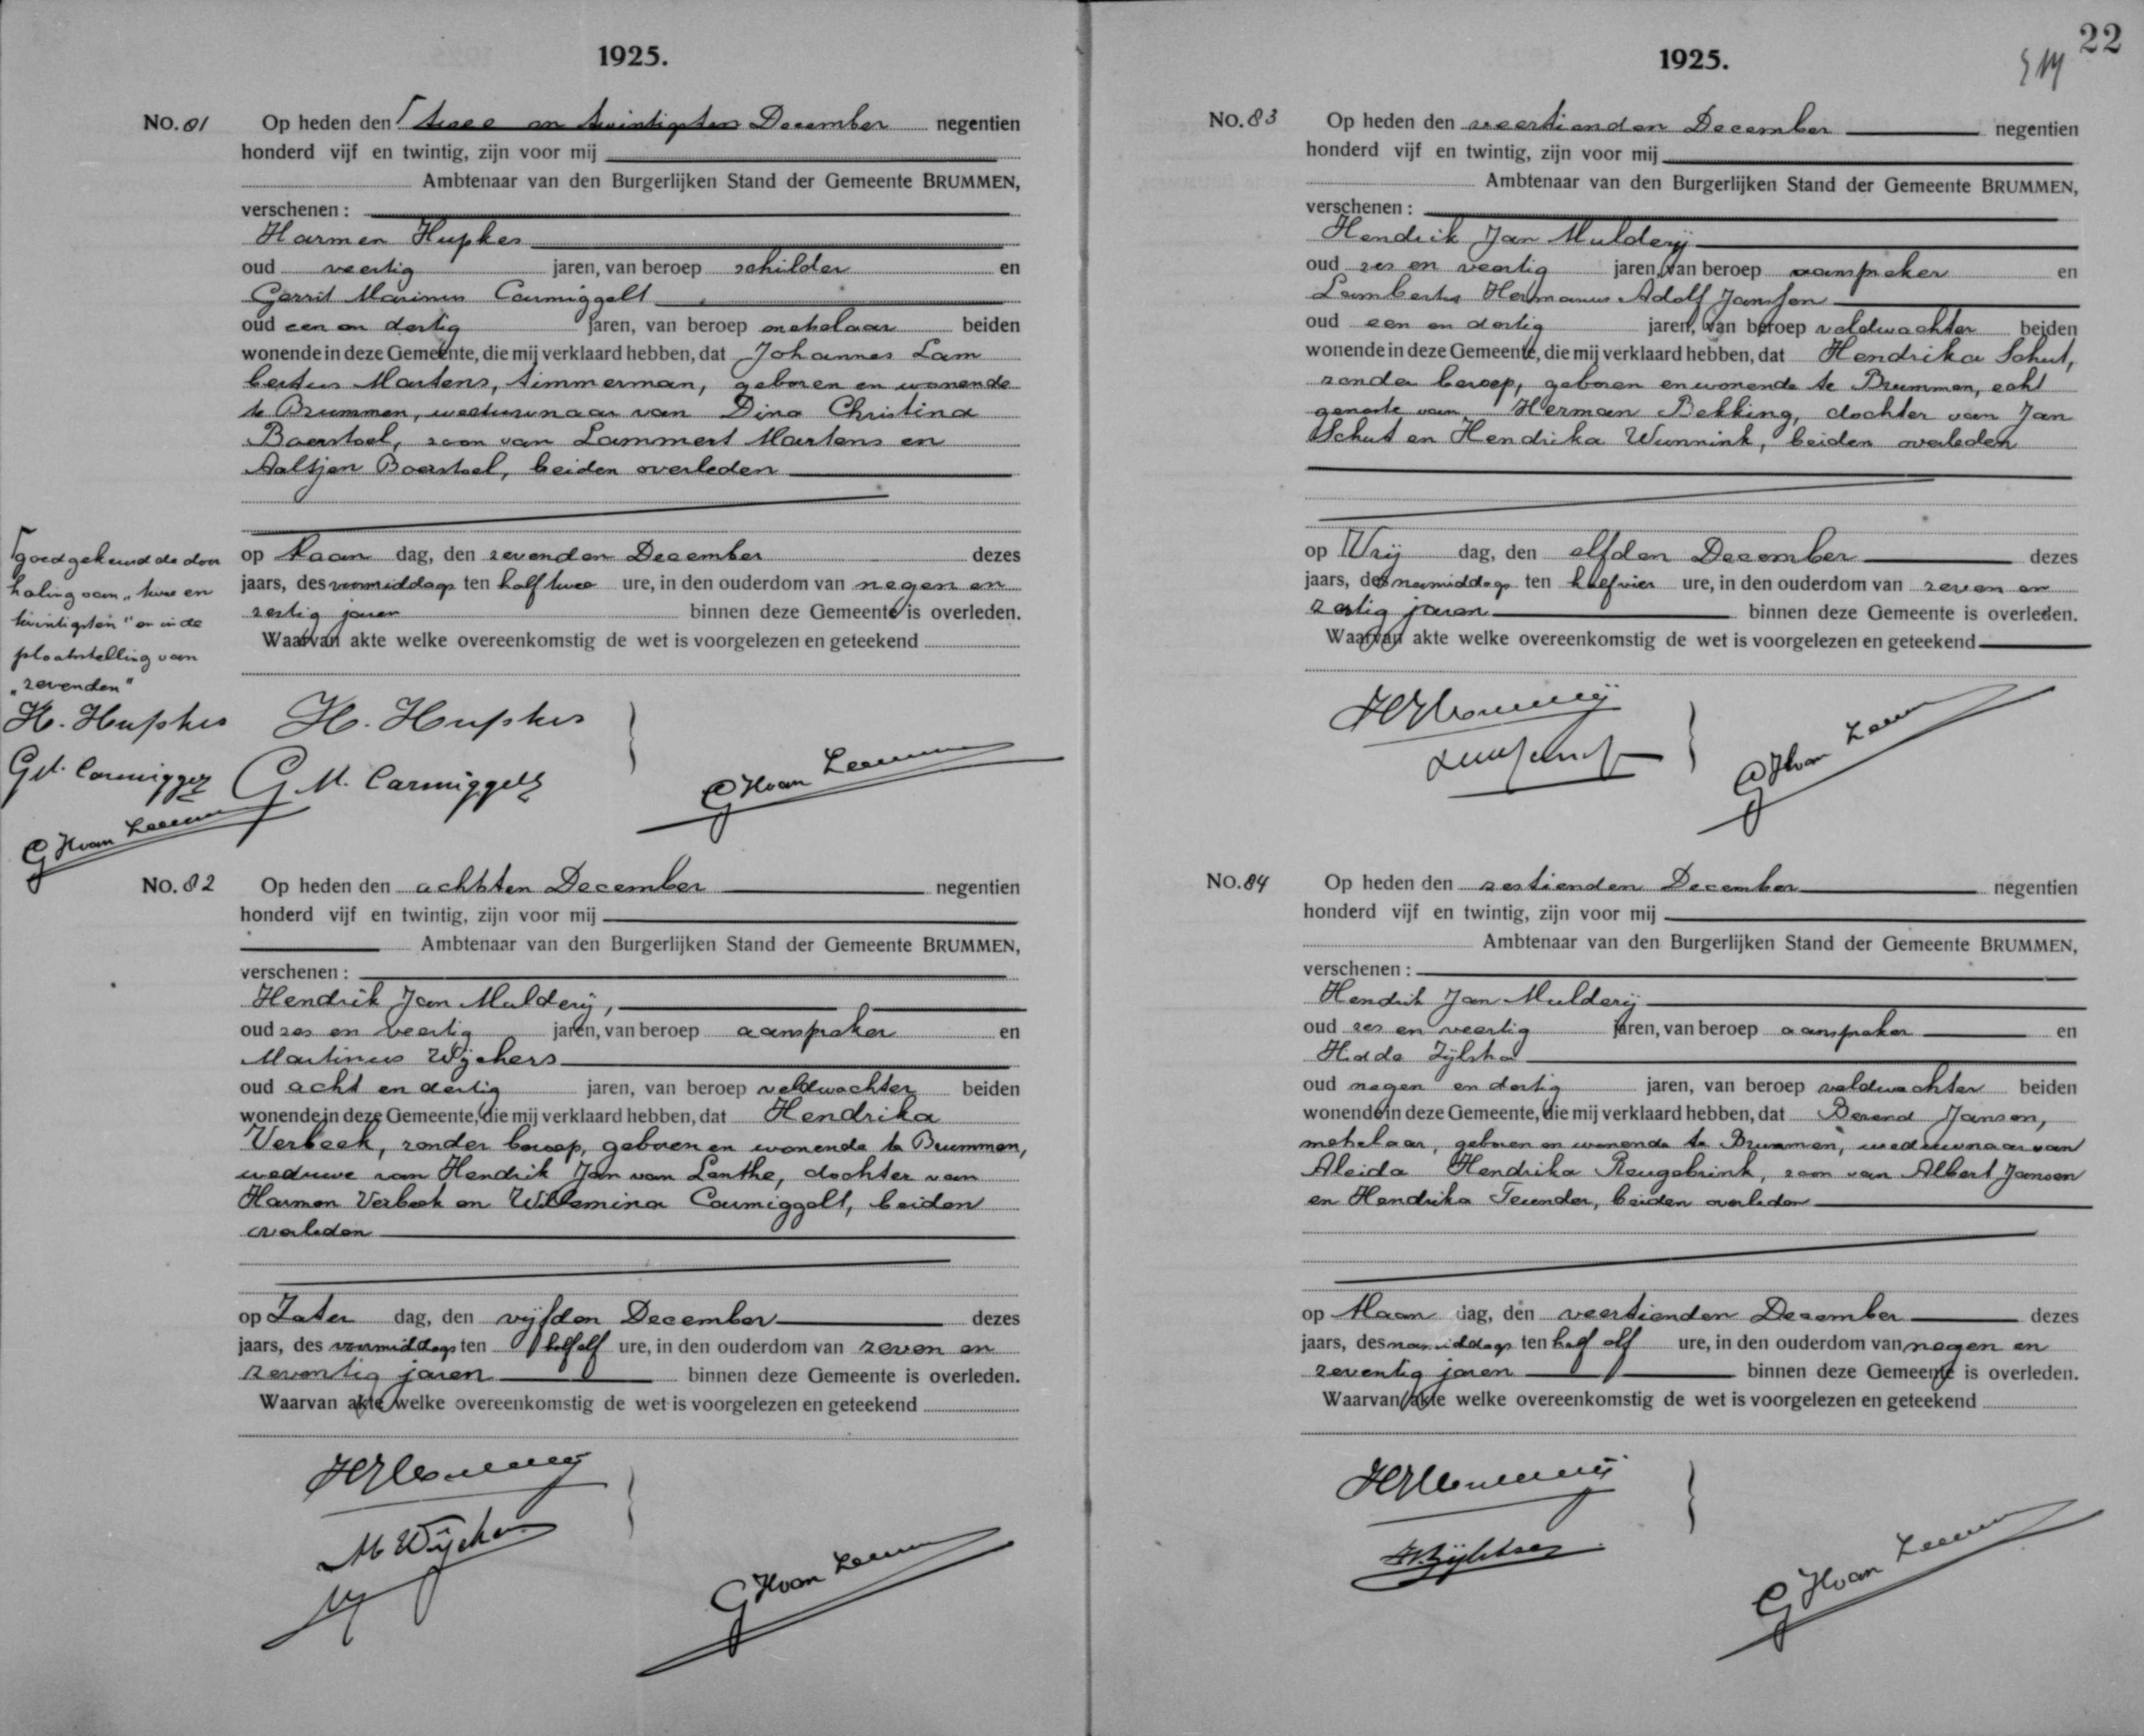 1925.
No. 81 Op heden den ⌈twee en twintigsten December negentien
honderd vijf en twintig, zijn voor mij
Ambtenaar van den Burgerlijken Stand der Gemeente BRUMMEN,
verschenen :
Harmen Hupkes
oud veertig jaren, van beroep schilder en
Gerrit Marinus Carmiggelt
oud een en dertig jaren, van beroep metselaar beiden
wonende in deze Gemeente, die mij verklaard hebben, dat Johannes Lam
bertus Martens, timmerman, geboren en wonende
te Brummen, weduwnaar van Dina Christina
Baerstoel, zoon van Lammert Martens en
Aaltjen Boerstoel, beiden overleden
op Maan dag, den zevenden December dezes
jaars, des voormiddags ten half twee ure, in den ouderdom van negen en
zestig jaren binnen deze Gemeente is overleden.
Waarvan akte welke overeenkomstig de wet is voorgelezen en geteekend
⌈goedgekeurd de door
haling van „twee en
twintigsten" en in de
plaatstelling van
„zevenden"
H. Hupkes H. Hupkes
G.M. Carmiggelt G.M. Carmiggelt
GHvan Leeuwen GHvan Leeuwen
No. 82 Op heden den achtsten December negentien
honderd vijf en twintig, zijn voor mij
Ambtenaar van den Burgerlijken Stand der Gemeente BRUMMEN,
verschenen :
Hendrik Jan Mulderij,
oud zes en veertig jaren, van beroep aanspreker en
Martinus Wijchers
oud acht en dertig jaren, van beroep veldwachter beiden
wonende in deze Gemeente, die mij verklaard hebben, dat Hendrika
Verbeek, zonder beroep, geboren en wonende te Brummen,
weduwe van Hendrik Jan van Lenthe, dochter van
Harmen Verbeek en Willemina Carmiggelt, beiden
overleden
op Zater dag, den vijfden December dezes
jaars, des voormiddags ten half elf ure, in den ouderdom van zeven en
zeventig jaren binnen deze Gemeente is overleden.
Waarvan akte welke overeenkomstig de wet is voorgelezen en geteekend
M Wijchers
GHvan Leeuwen
22
1925.
No. 83 Op heden den veertienden December negentien
honderd vijf en twintig, zijn voor mij
Ambtenaar van den Burgerlijken Stand der Gemeente BRUMMEN,
verschenen :
Hendrik Jan Mulderij
oud zes en veertig jaren, van beroep aanspreker en
Lambertus Hermanus Adolf Janssen
oud een en dertig jaren, van beroep veldwachter beiden
wonende in deze Gemeente, die mij verklaard hebben, dat Hendrika Schut,
zonder beroep, geboren en wonende te Brummen, echt
genoote van Herman Bekking, dochter van Jan
Schut en Hendrika Wunnink, beiden overleden
op Vrij dag, den elfden December dezes
jaars, des namiddags ten half vier ure, in den ouderdom van zeven en
zestig jaren binnen deze Gemeente is overleden.
Waarvan akte welke overeenkomstig de wet is voorgelezen en geteekend
GHvan Leeuwen
No. 84 Op heden den zestienden December negentien
honderd vijf en twintig, zijn voor mij
Ambtenaar van den Burgerlijken Stand der Gemeente BRUMMEN,
verschenen :
Hendrik Jan Mulderij
oud zes en veertig jaren, van beroep aanspreker en
Hidde Zijlstra
oud negen en dertig jaren, van beroep veldwachter beiden
wonende in deze Gemeente, die mij verklaard hebben, dat Berend Jansen,
metselaar, geboren en wonende te Brummen, weduwnaar van
Aleida Hendrika Reugebrink, zoon van Albert Jansen
en Hendrika Teunder, beiden overleden
op Maan dag, den veertienden December dezes
jaars, des namiddags ten half elf ure, in den ouderdom van negen en
zeventig jaren binnen deze Gemeente is overleden.
Waarvan akte welke overeenkomstig de wet is voorgelezen en geteekend
H. Zijlstra
GHvan Leeuwen